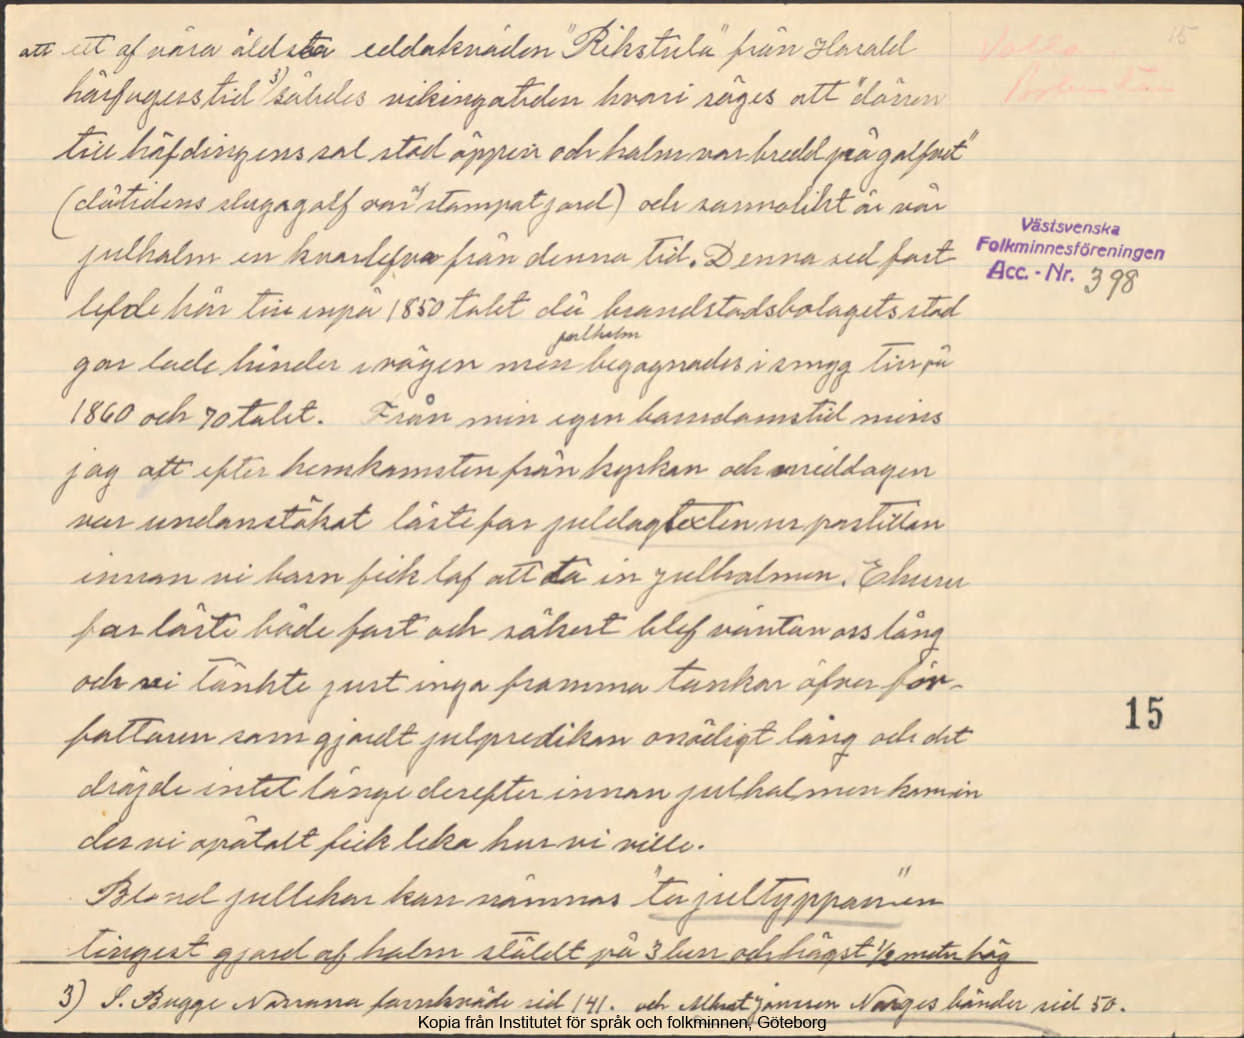 15
Valla
att ett af våra äldsta eddakväden "Rikstula" från Harald
hårfagerstid 3) således vikingatiden hvari säges att "dörren
till höfdingens sal stod öppen och halm var bredd på golfvet"
(dåtidens stugagolf var af stampat jord) och sannolikt är vår
julhalm en kvarlefva från denna tid. Denna sed fort
lefde här till inpå 1850 talet då brandstodsbolagets stad
gar lade hinder i vägen men julhalm begagnades i smyg till på
1860 och 70 talet. Från min egen barndomstid mins
jag att efter hemkomsten från kyrkan och middagen
var undanstökat läste far juldagtexten ur postillan
innan vi barn fick lof att ta in julhalmen. Ehuru
far läste både fort och säkert blef väntan oss lång
och vi tänkte just inga fromma tankar öfver för-
fattaren som gjordt julpredikan onödigt lång och det
dröjde intet länge derefter innan julhalmen kom in
der vi opåtalt fick leka hur vi ville.
Bland jullekar kan nämnas "ta jultyppan" en
tingest gjord af halm stäldt på 3 ben och högst 1/2 meter hög
3) S. Bugge Norrøna fornkväde sid 141. och Albert Jonsson Norges bönder sid 50.
Västsvenska
Folkminnesföreningen
Acc. - Nr. 398
15
Kopia från Institutet för språk och folkminnen, Göteborg